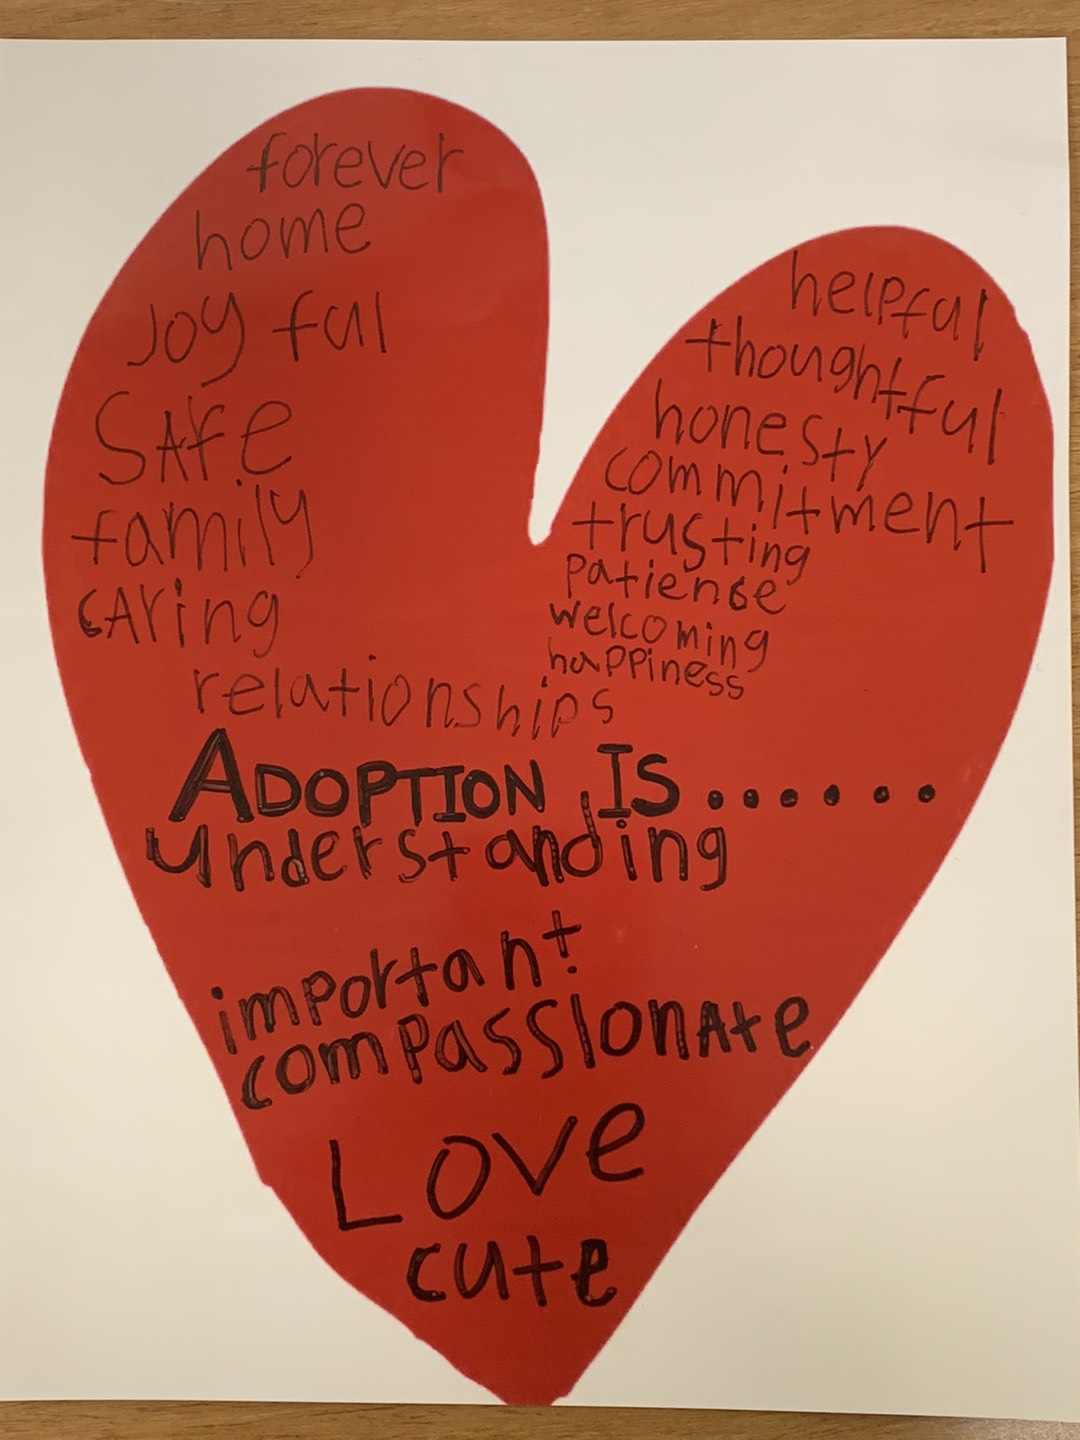 forever
home
Joyful
SAfe
family
cAring
relationships
helpful
thoughtful
honesty
commitment
trusting
patiense
welcoming
happiness
ADOPTION IS......
understanding
important
compassionAte
Love
cute